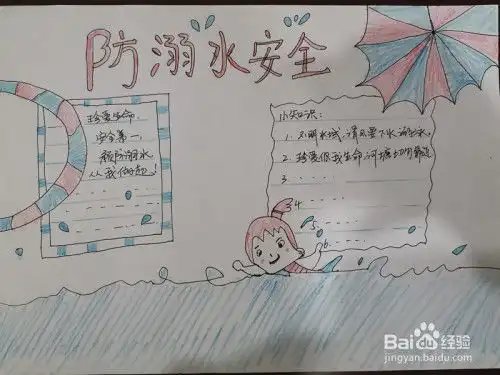 防溺水安全
珍爱生命
安全第一,
预防溺水
从我做起!
小知识:
1. 不明水域,请勿要下水游泳水。
2. 珍爱你我生命,河塘切勿靠近
3
4
5
6
Baidu经验
jingyan.baidu.com